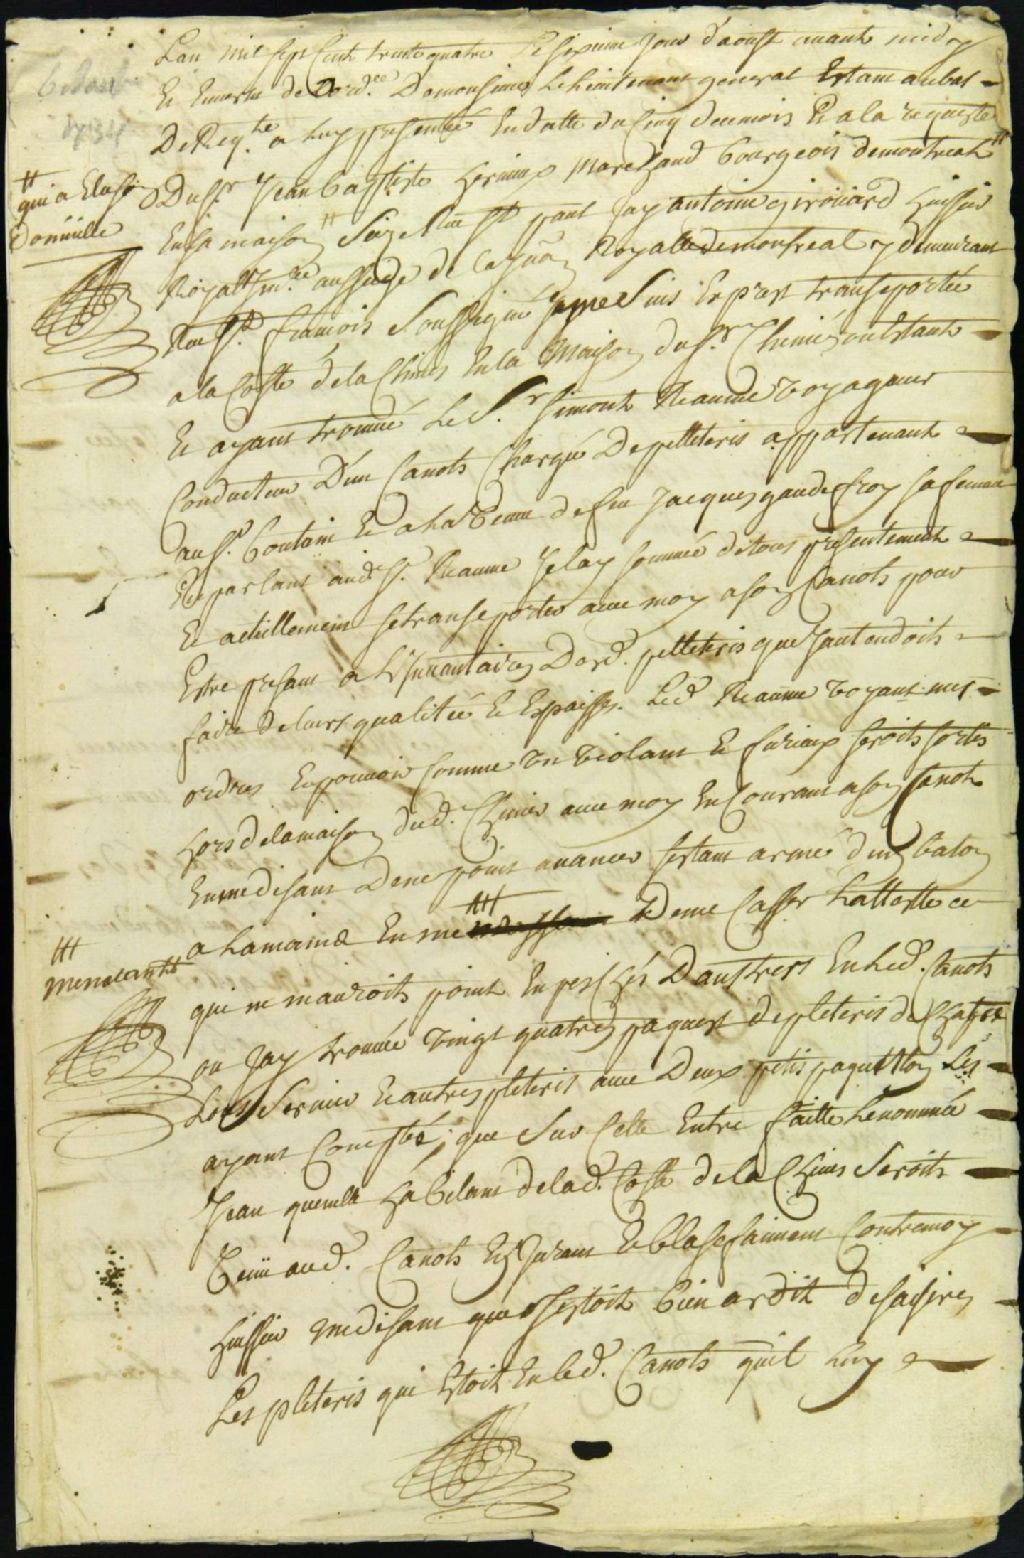 L'an mil sept Cent trente quatre Le sixieme Jour d'aoust auant midy
En Euertu de L'ord.ce De monsieur Le Lieutenant general Estant au bas
De Req.te a Luy presentée En datte du Cinq du mois Et a la requeste
Du Sr. Jean baptiste marchand bourgeois de montreal
qui a Elu so
Domicille
En sa maison Size Rue St. paul Jay antoine girouard huissier
Royall de montreal y demeurant
Rue St. francois Soussigné Je me suis Expres transporté
a la Coste de la Chine En la maison du Sr. Chenié
Et ayant trouué Le Sr. simont Reaume voyageur
Conducteur D'un Canots Chargé De pelleteris appartenant
au Sr. Et a la veuue de feu Jacques gaudeffroy sa femme
Et parlant aud. Sr. Reaume Je lay sommé de tous presentement
Et actuellement se transporter auec moy a son Canots pour
Estre present a L'Innuantaire Desd. pelleteris que Jantandoits
faire de leurs qualitée Et Espaisse. Led. Reaume voyant mes
ordres Et pouuoir Comme un violant Et furieux seroits sortis
hors de la maison dud. Chenié auec moy En Courant a son Canots
En me disant De ne point auancer sestant armé d'un baton
a la maind En me De me Casser La teste ce
menacant
qui ne m'auroits point Enpesché D'anstrer En led. Canots
ou Jay trouuée vingt quatre paquest de pleteris de Castor
Loup Seruié Et autres pleteris auec Deux petis paquest Les
ayant Compté; que Sur Cette Entre faitte Le nommée
Jean quenelle habitant de lad. Coste de la Chine Seroits
venu aud. Canots En Jurant Et blasfaimant Contre moy
huissier me disant que Jestoit bien ardit de saisire
Les pleteris qui Estoit En led. Canots qu'il Luy